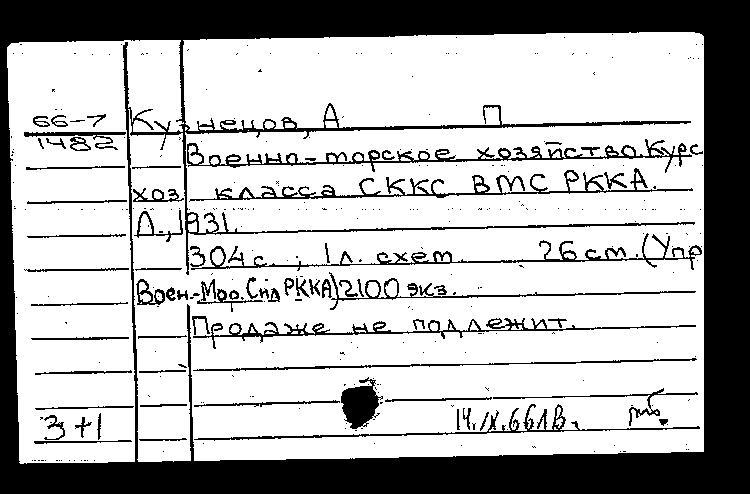 66-7 Кузнецов, А. П
1482
Военно-морское хозяйство. Курс
хоз. класса СККС ВМС РККА.
Л., 1931.
304 с.; 1 л. схем. 26 см. (Упр
Воен.-Мор. Сил РККА) 2100 экз.
Продаже не подлежит.
3+1 14.IX.66 ЛВ.